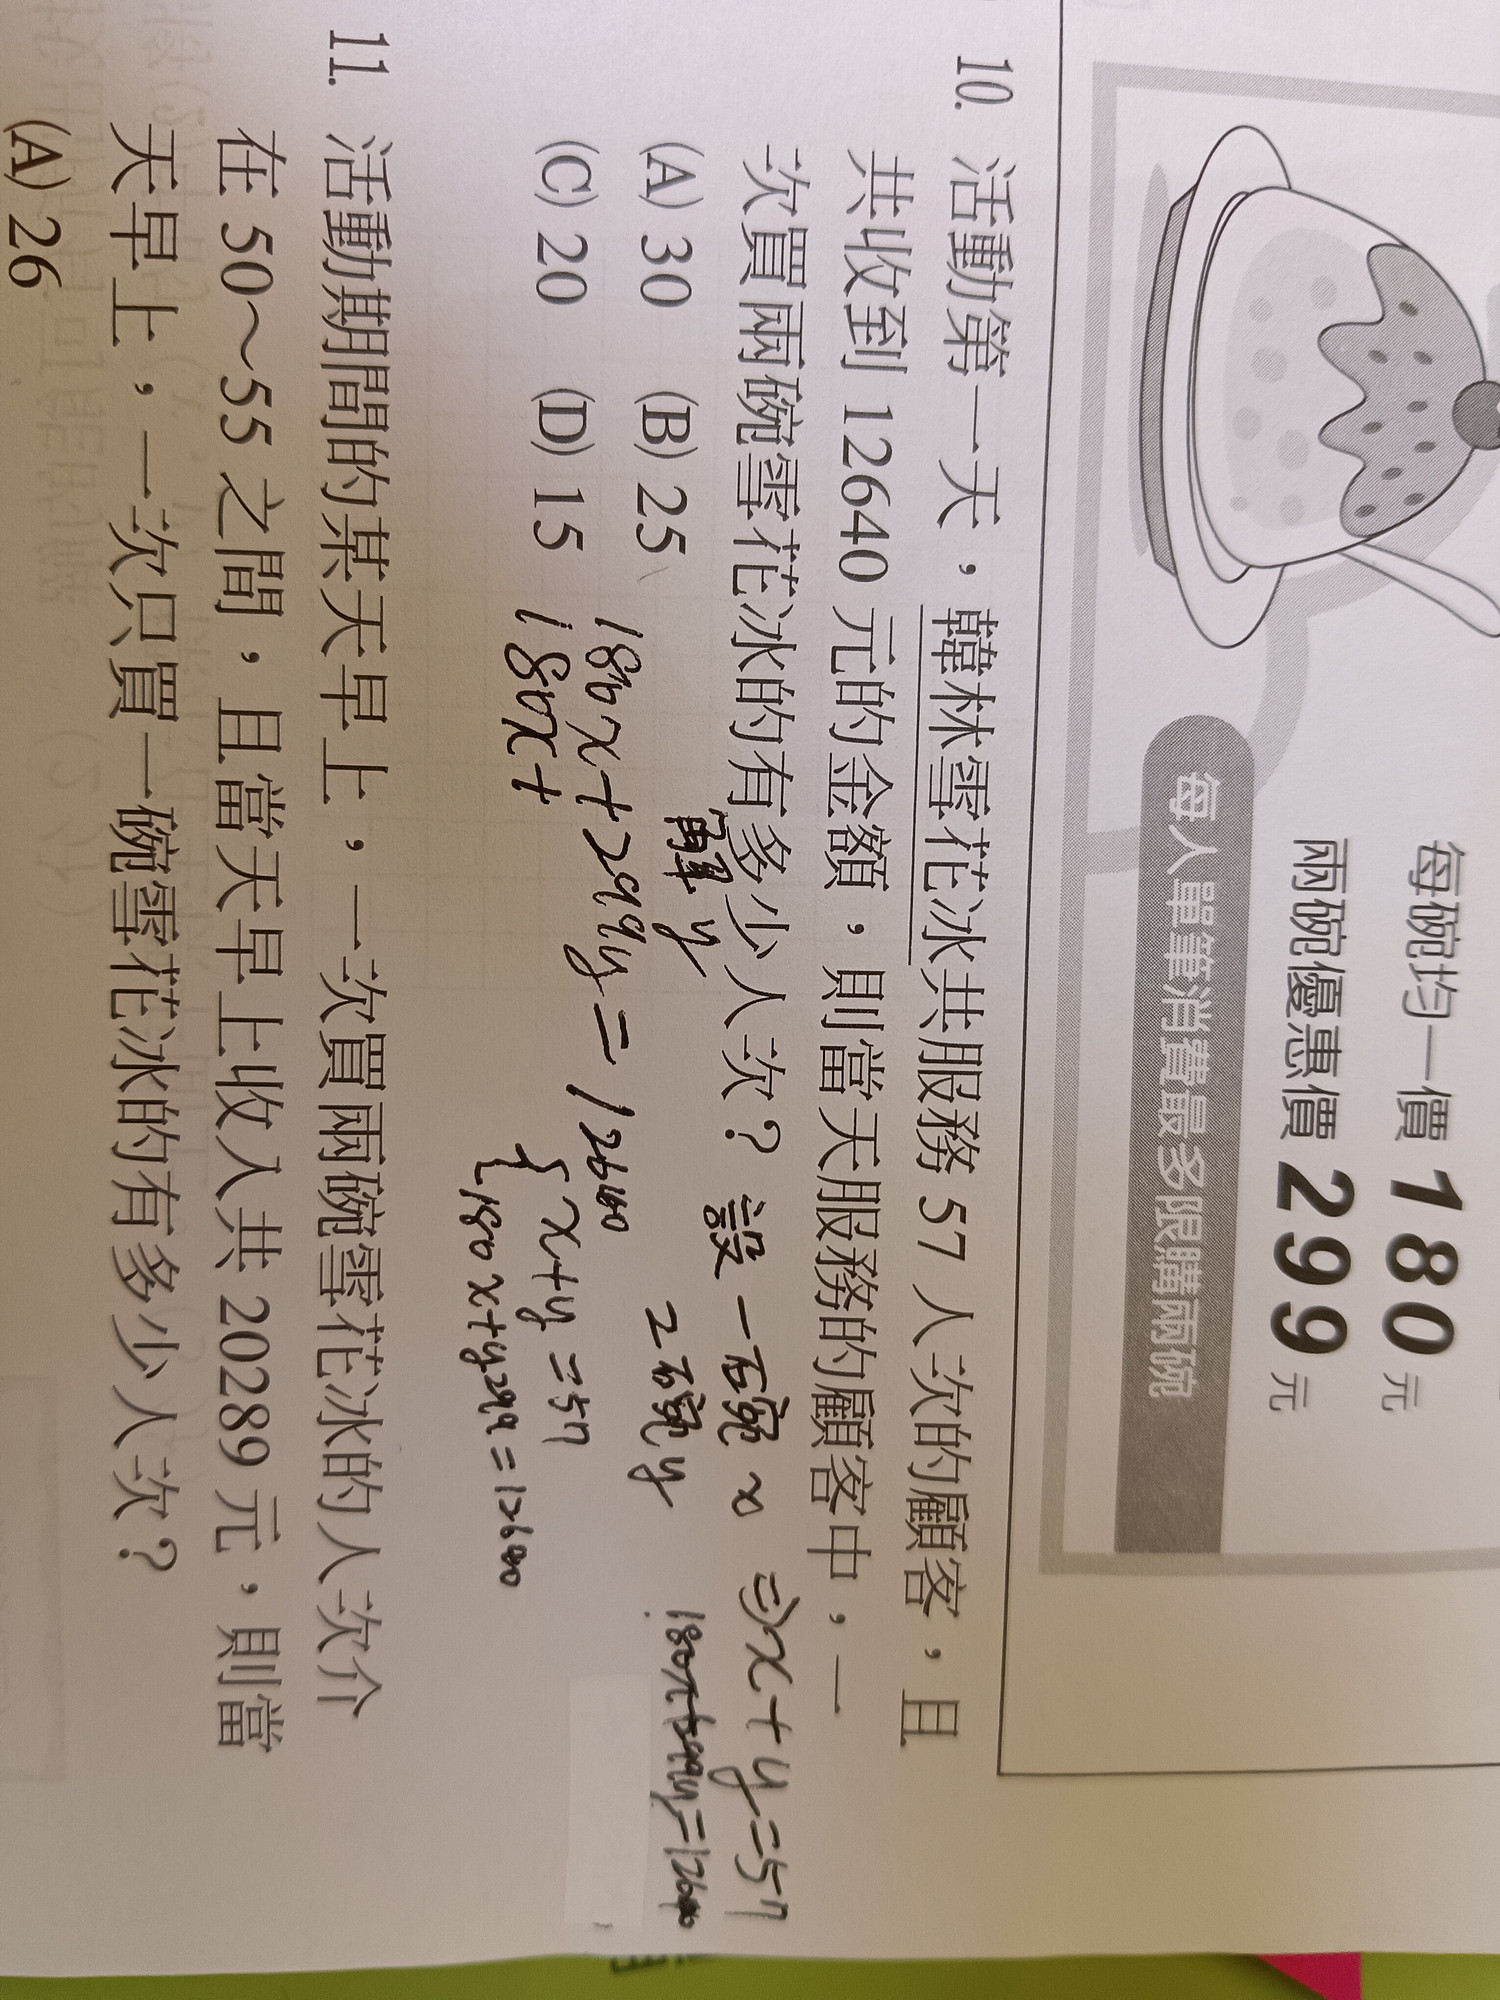 每碗均一價 180 元
兩碗優惠價 299 元
每人單筆消費最多限購兩碗
10. 活動第一天,韓林雪花冰共服務 57 人次的顧客,且
共收到 12640 元的金額,則當天服務的顧客中,一
次買兩碗雪花冰的有多少人次?
(A) 30 (B) 25
(C) 20 (D) 15
設一碗 x ⇒ x+y=57
2碗 y
解 y
180x+299y=12640
180x+
{ x+y=57
11. 活動期間的某天早上,一次買兩碗雪花冰的人次介
在 50~55 之間,且當天早上收入共 20289 元,則當
天早上,一次只買一碗雪花冰的有多少人次?
(A) 26